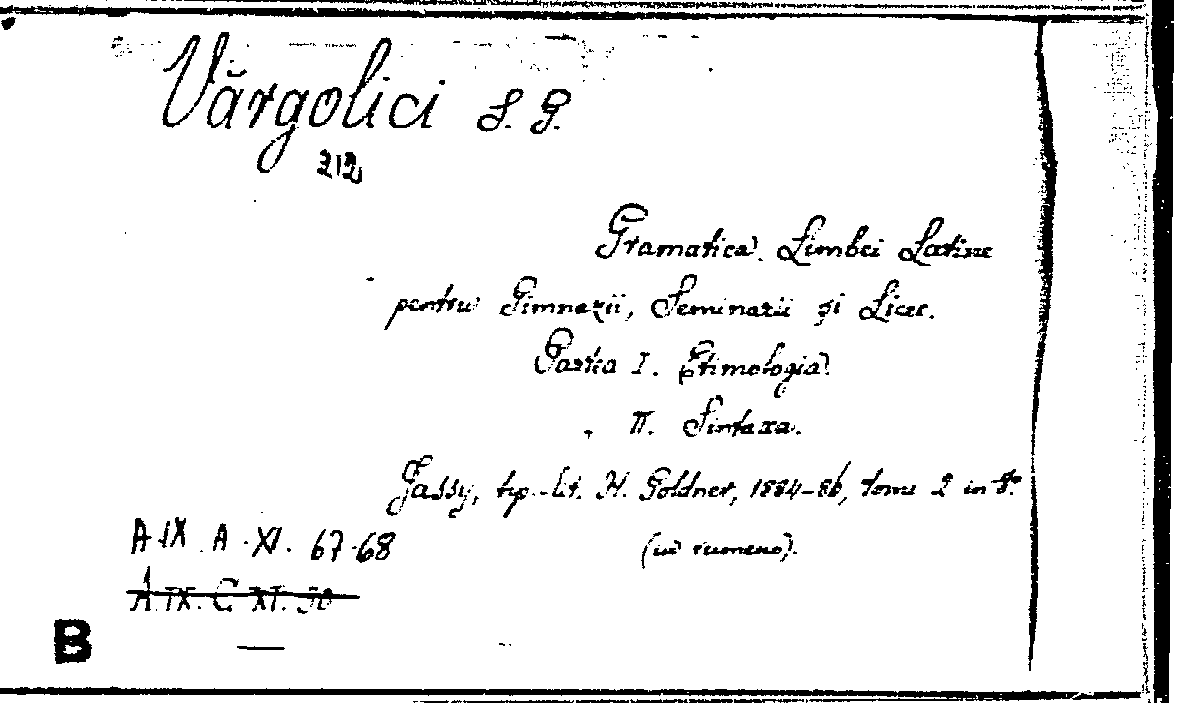 Vărgolici S. G.
212
Gramatica Limbei Latine
pentru Gimnazii, Seminarii și Licee.
Partea I. Etimologia.
„ II. Sintaxa.
Jassy, tip.-lit. H. Goldner, 1884-86, tomi 2 in 8°.
(in rumeno).
A·IX·A·XI. 67-68
A.IX. C. XI. 50
B